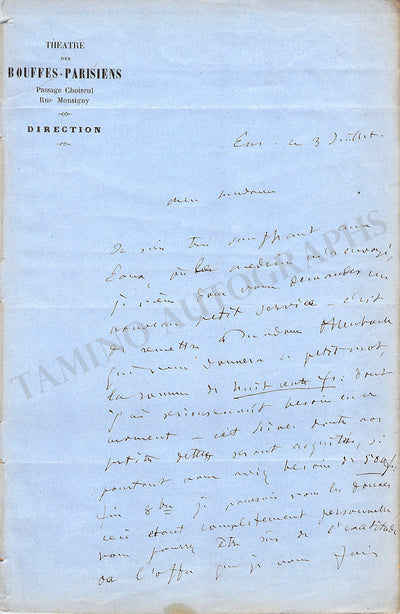 THÉATRE
DES
BOUFFES-PARISIENS
Passage Choiseul
Rue Monsigny
DIRECTION
Ems. ce 3 Juillet.
Je suis très souffrant aux
Eaux, où le médecin m'a envoyé,
je viens vous demander un
nouveau petit service – c'est
de remettre à Madame Offenbach
qui vous donnera ce petit mot,
la somme de huit cents f. dont
j'ai sérieusement besoin en ce
moment – cet hiver toutes nos
petites dettes seront acquittées, si
pourtant vous aviez besoin de 500 f.
fin 8bre je pourrais vous les donner
ceci étant complètement personnelle
vous pouvez être sûr de l'exactitude
de l'offre que je vous fais
TAMINO AUTOGRAPHS